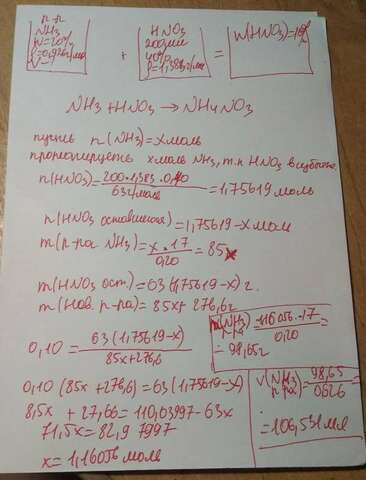 р-р
NH3
W=20%
V-
+
HNO3
200мл
40%
ρ=1,383г/мл
=
W(HNO3)=10%
NH3+HNO3→NH4NO3
пусть n(NH3)=x моль
прореагирует x моль NH3, т.к HNO3 в избытке
n(HNO3)=200·1,383·0,40
63г/моль
=1,75619 моль
n(HNO3 оставшаяся)=1,75619-x моль
m(р-ра NH3)=x·17
0,20
=85x
m(HNO3 ост.)=63(1,75619-x) г.
m(нов. р-ра)=85x+276,6г
0,10=63(1,75619-x)
85x+276,6
0,10(85x+276,6)=63(1,75619-x)
8,5x+27,66=110,63997-63x
71,5x=82,97997
x=1,16056 моль
(NH3)=1,16056·17
0,20
=
=98,65г
V(NH3
р-ра)
=98,65
0,926
=
=106,531мл